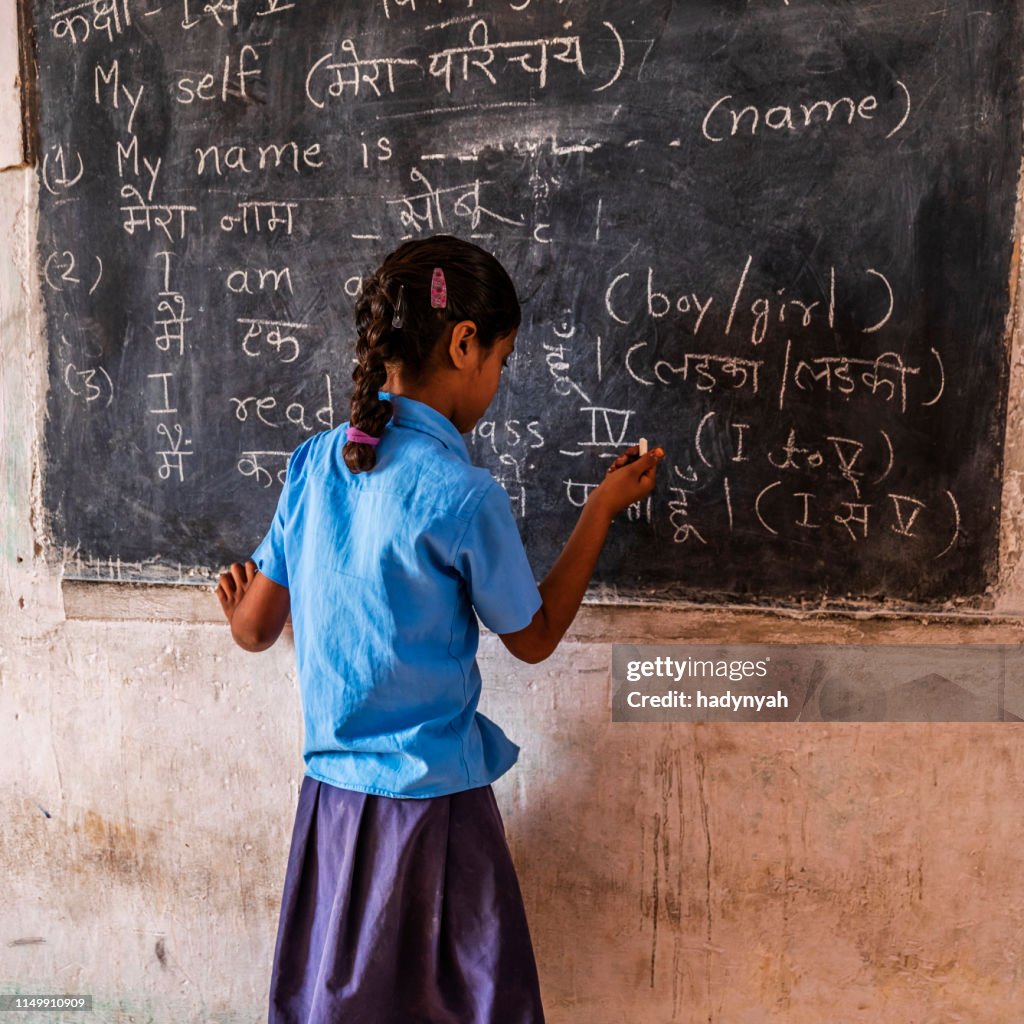 कक्षा - I से V
My self (मेरा परिचय)
(1) My name is (name)
मेरा नाम सोनू
(2) I am a (boy/girl)
मैं एक हूँ । (लड़का/लड़की)
(3) I read class IV (I to V)
मैं हूँ । (I से V)
gettyimages
Credit: hadynyah
1149910909